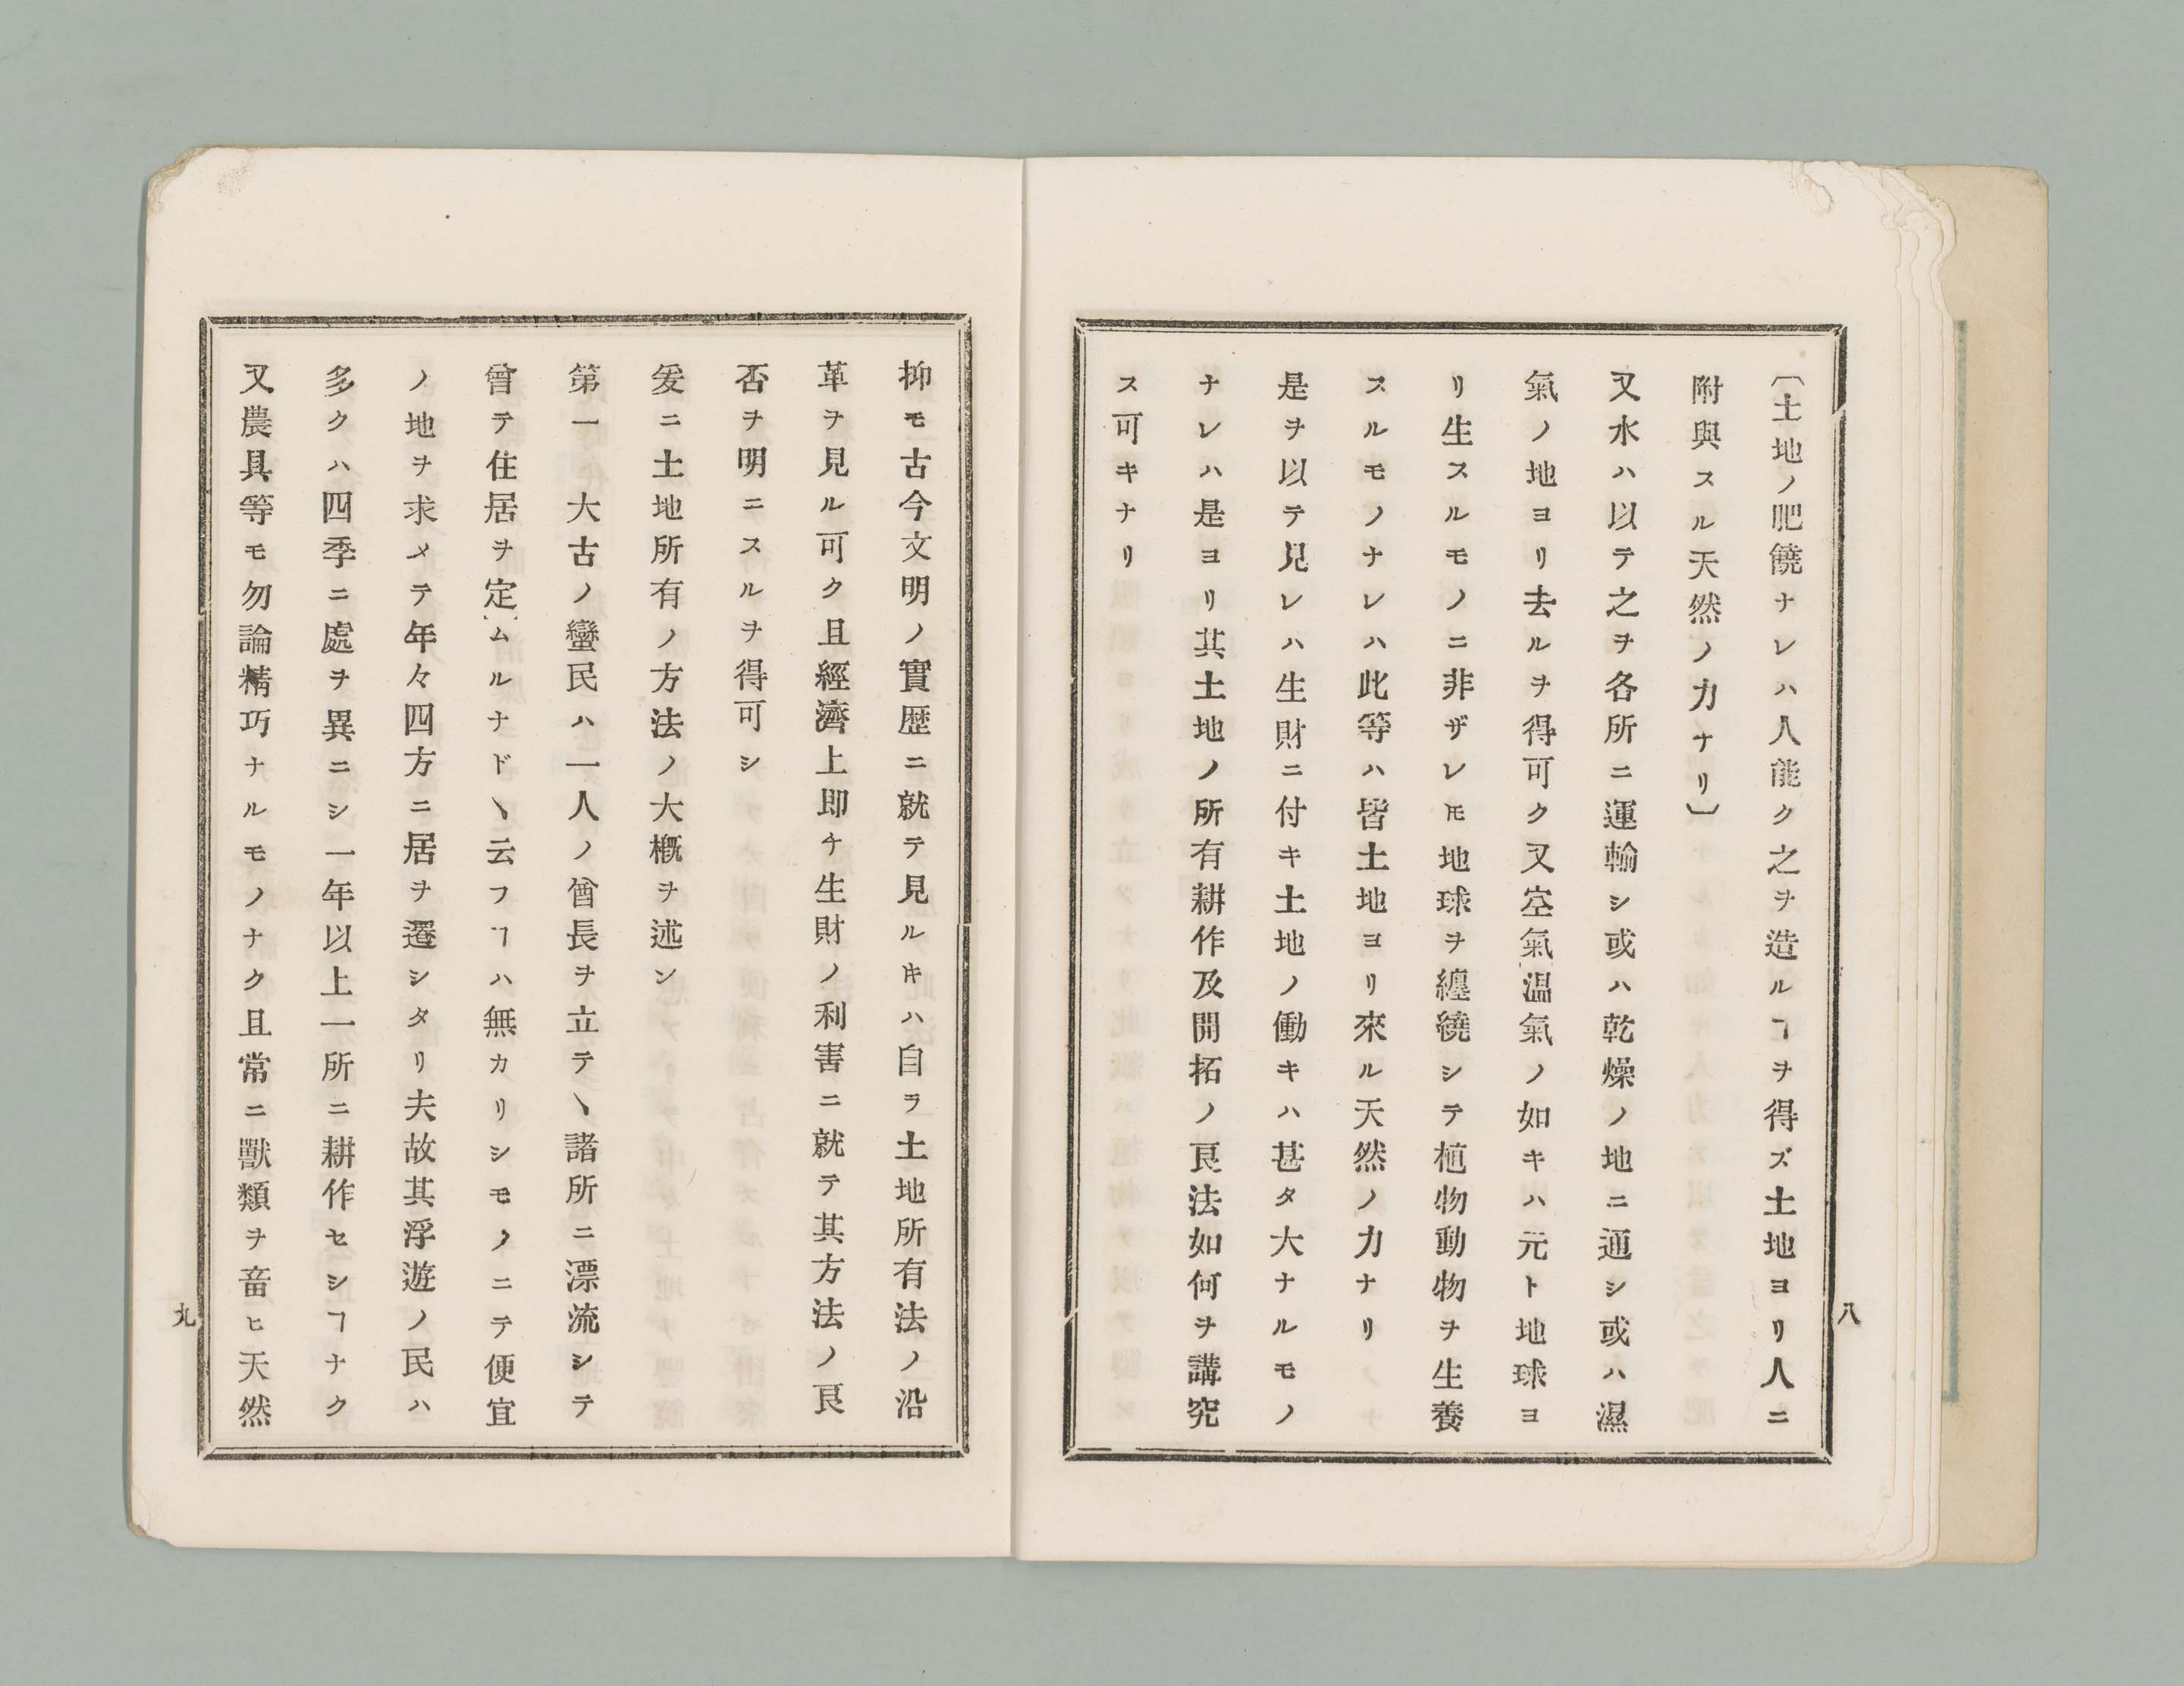 〔土地ノ肥饒ナレハ人能ク之ヲ造ルヿヲ得ズ土地ヨリ人ニ
附與スル天然ノ力ナリ〕
又水ハ以テ之ヲ各所ニ運輸シ或ハ乾燥ノ地ニ通シ或ハ濕
氣ノ地ヨリ去ルヲ得可ク又空氣温氣ノ如キハ元ト地球ヨ
リ生スルモノニ非ザレ𪜈地球ヲ纏繞シテ植物動物ヲ生養
スルモノナレハ此等ハ皆土地ヨリ來ル天然ノ力ナリ
是ヲ以テ見レハ生財ニ付キ土地ノ働キハ甚タ大ナルモノ
ナレハ是ヨリ其土地ノ所有耕作及開拓ノ良法如何ヲ講究
ス可キナリ
八
抑モ古今文明ノ實歴ニ就テ見ルキハ自ラ土地所有法ノ沿
革ヲ見ル可ク且經濟上即チ生財ノ利害ニ就テ其方法ノ良
否ヲ明ニスルヲ得可シ
爰ニ土地所有ノ方法ノ大概ヲ述ン
第一 大古ノ蠻民ハ一人ノ酋長ヲ立テヽ諸所ニ漂流シテ
曾テ住居ヲ定ムルナドヽ云フヿハ無カリシモノニテ便宜
ノ地ヲ求メテ年々四方ニ居ヲ遷シタリ夫故其浮遊ノ民ハ
多クハ四季ニ處ヲ異ニシ一年以上一所ニ耕作セシヿナク
又農具等モ勿論精巧ナルモノナク且常ニ獸類ヲ畜ヒ天然
九